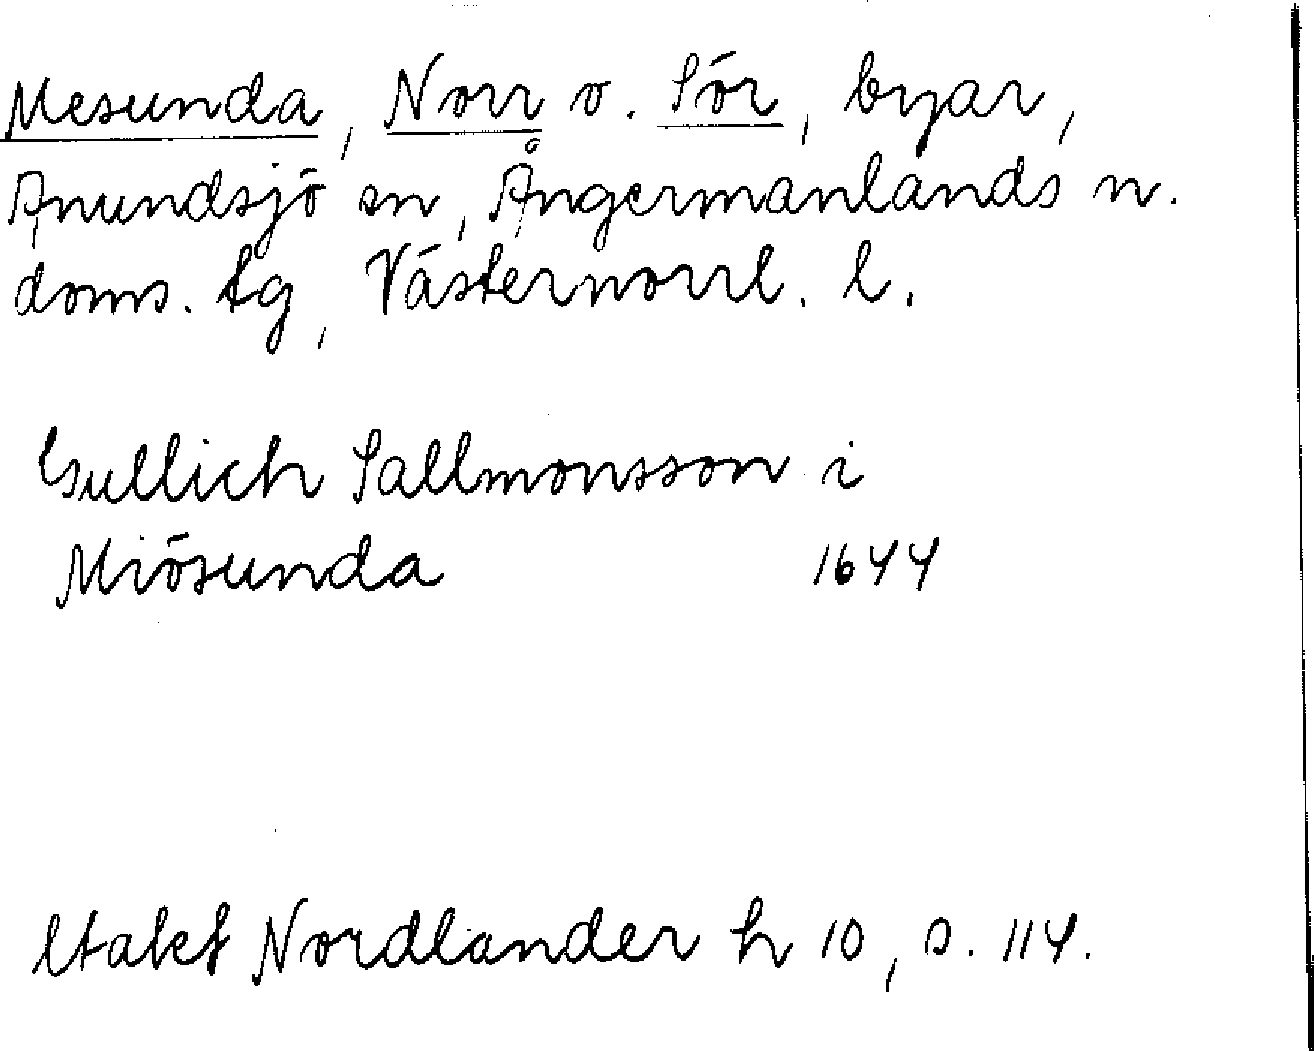 Mesunda, Norr o. Sör, byar,
Anundsjö sn, Ångermanlands n.
doms. tg, Västernorrl. l.
Gullich Sallmonsson i
Miösunda 1644
Nordlander h 10, s. 114.